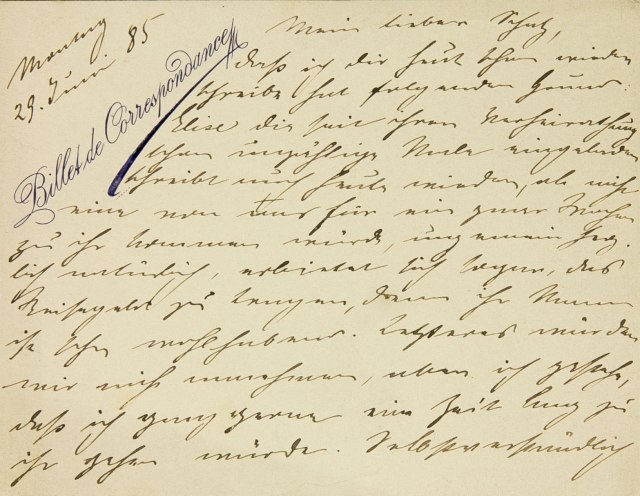 Montag
29. Juni 85
Billet de Correspondance
Mein lieber Schatz,
daß ich dir heut schon wieder
schreibe hat folgenden Grund:
Elise die seit ihrer Verheirathung
schon unzählige Male eingeladen
schreibt auch heute wieder, ob nicht
eine von uns für ein paar Wochen
zu ihr kommen würde, ungemein herz-
lich natürlich, erbietet sich sogar, das
Reisegeld zu tragen, denn ihr Mann
ist sehr wohlhabend. Letzteres würden
wir nicht annehmen, aber ich gestehe,
daß ich ganz gerne eine Zeit lang zu
ihr gehen würde. Selbstverständlich